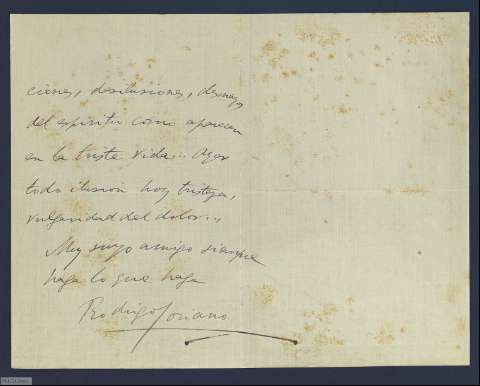 ciones, desilusiones,
del espiritu como aparecen
en la triste vida... Ayer
todo ilusion hoy tristeza,
vulgaridad del dolor...
Muy suyo amigo siempre
haga lo que haga
Rodrigo Soriano